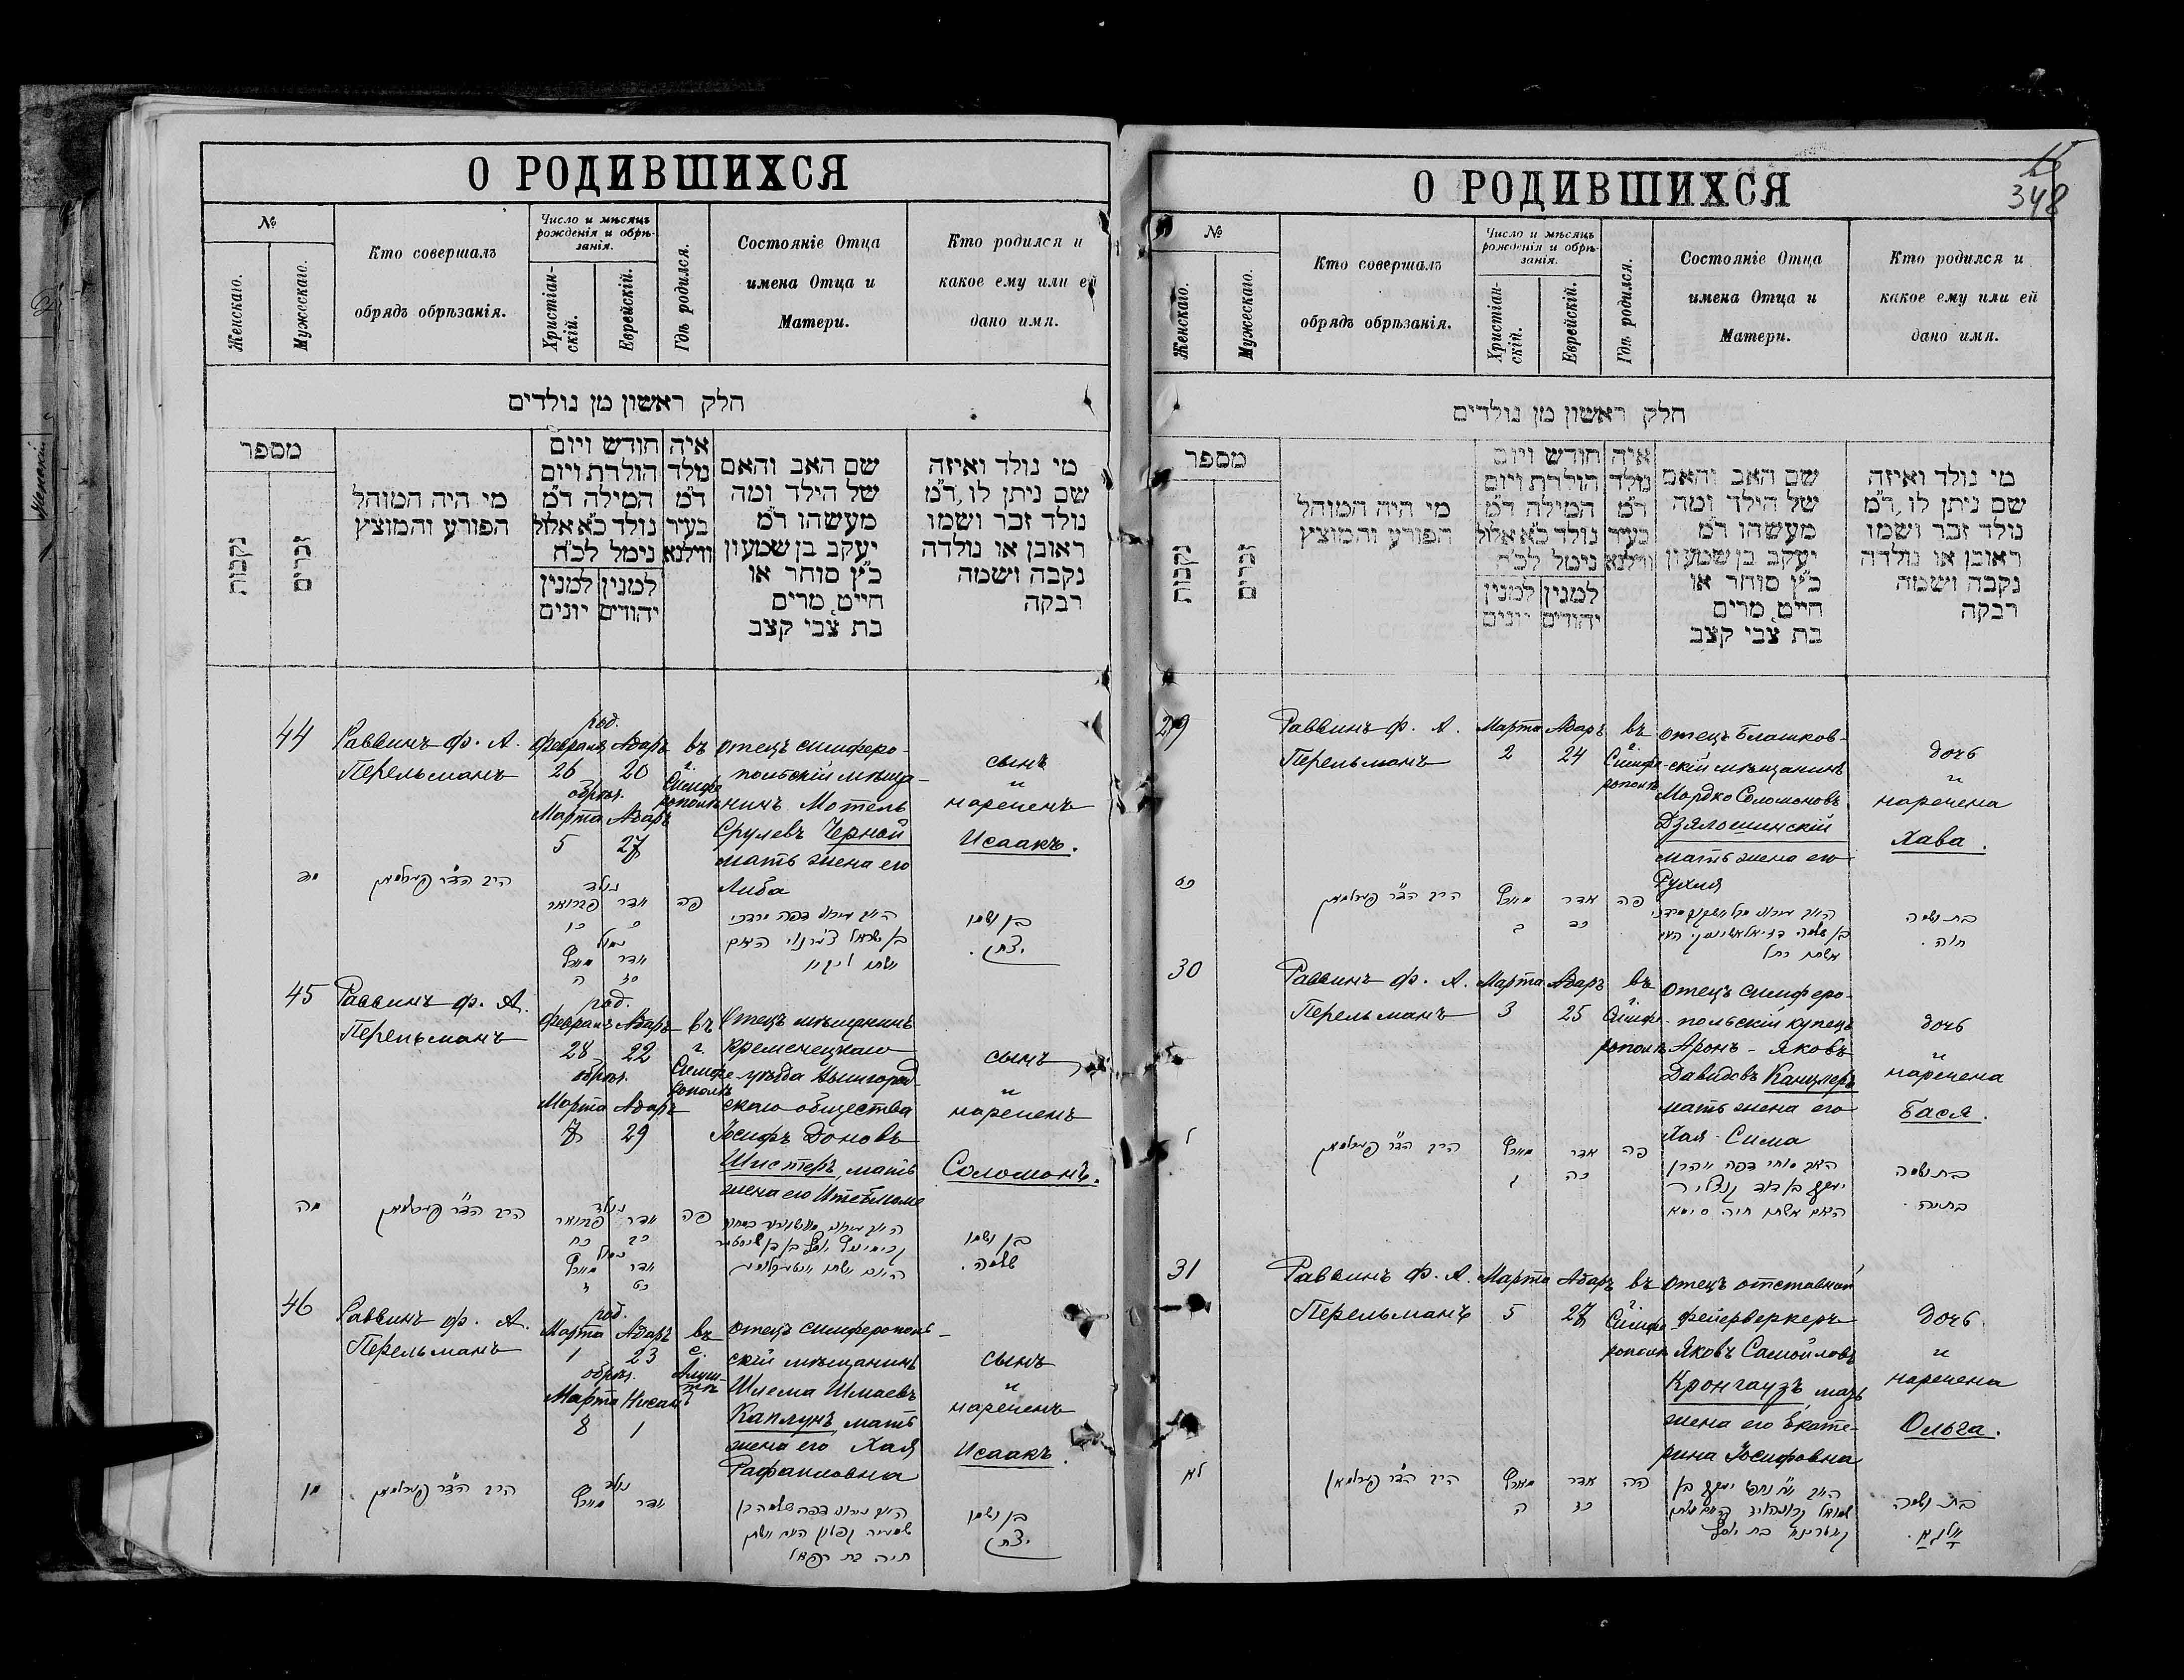 О РОДИВШИХСЯ
№
Женскаго.
Мужескаго.
Кто совершалъ
обрядъ обрѣзанія.
Число и мѣсяцъ
рожденія и обрѣ-
занія.
Христіан-
скій.
Еврейскій.
Гдѣ родился.
Состояніе Отца
имена Отца и
Матери.
Кто родился и
какое ему или ей
дано имя.
חלק ראשון מן נולדים
מספר
נקבות
זכרים
מי היה המוהל
הפורע והמוצץ
חודש ויום
הולדת ויום
המילה ד״מ
נולד כ״א אלול
נימל לכ״ח
למנין יהודים
למנין יונים
איה
נולד
ד״מ
בעיר
ווילנא
שם האב והאם
של הילד ומה
מעשהו ד״מ
יעקב בן שמעון
כ״ץ סוחר או
חייט, מרים
בת צבי קצב
מי נולד ואיזה
שם ניתן לו, ד״מ
נולד זכר ושמו
ראובן או נולדה
נקבה ושמה
רבקה
44
Раввинъ ф. А.
Перельманъ
род.
Февраля Адаръ
26 20
обрѣз.
Марта Адаръ
5 27
въ
г.
Симфе
рополѣ
отецъ симферо-
польскій мѣща-
нинъ Мотель
Срулевъ Черной
мать жена его
Либа
сынъ
и
нареченъ
Исаакъ.
מד
הרב הד״ר פערלמאן
נולד
אדר פברואר
כ כו
נמול
אדר מערץ
כז ה
פה
בן ושמו
יצחק.
45
Раввинъ ф. А.
Перельманъ
род.
Февраля Адаръ
28 22
обрѣз.
Марта Адаръ
7 29
въ
г.
Симфе
рополѣ
Отецъ мѣщанинъ
Кременецкаго
уѣзда Вышгород-
скаго общества
Іосифъ Доновъ
Шистеръ, мать
жена его
сынъ
и
нареченъ
Соломонъ.
מה
הרב הד״ר פערלמאן
נולד
אדר פברואר
כב כח
נמול
אדר מערץ
כט ז
פה
בן ושמו
שלמה.
46
Раввинъ ф. А.
Перельманъ
род.
Марта Адаръ
1 23
обрѣз.
Марта Нисанъ
8 1
въ
с.
Алуш-
тѣ
отецъ симферополь-
скій мѣщанинъ
Шлема Шмаевъ
Каплунъ, мать
жена его Хая
Рафаиловна
сынъ
и
нареченъ
Исаакъ.
מו
הרב הד״ר פערלמאן
נולד
אדר מערץ
חיה בת רפאל
בן ושמו
יצחק
348
О РОДИВШИХСЯ
№
Женскаго.
Мужескаго.
Кто совершалъ
обрядъ обрѣзанія.
Число и мѣсяцъ
рожденія и обрѣ-
занія.
Христіан-
скій.
Еврейскій.
Гдѣ родился.
Состояніе Отца
имена Отца и
Матери.
Кто родился и
какое ему или ей
дано имя.
חלק ראשון מן נולדים
מספר
נקבות
זכרים
מי היה המוהל
הפורע והמוצץ
חודש ויום
הולדת ויום
המילה ד״מ
נולד כ״א אלול
נימל לכ״ח
למנין יהודים
למנין יונים
איה
נולד
ד״מ
בעיר
ווילנא
שם האב והאם
של הילד ומה
מעשהו ד״מ
יעקב בן שמעון
כ״ץ סוחר או
חייט, מרים
בת צבי קצב
מי נולד ואיזה
שם ניתן לו, ד״מ
נולד זכר ושמו
ראובן או נולדה
נקבה ושמה
רבקה
29
Раввинъ ф. А.
Перельманъ
Марта Адаръ
2 24
въ
г.
Симфе
рополѣ
отецъ Блашков-
скій мѣщанинъ
Мордко Соломоновъ
Дзялошинскій
мать жена его
Рухля
дочь
и
наречена
Хава.
כט
הרב הד״ר פערלמאן
אדר מערץ
כד ב
פה
אשתו רחל
בת ושמה
חוה.
30
Раввинъ ф. А.
Перельманъ
Марта Адаръ
3 25
въ
г.
Симфе
рополѣ
отецъ симферо-
польскій купецъ
Аронъ-Яковъ
Давидовъ Канцлеръ
мать жена его
Хая-Сима
дочь
и
наречена
Бася.
ל
הרב הד״ר פערלמאן
אדר מערץ
כה ג
פה
יעקב בן דוד קנצליר
האם אשתו חיה סימא
בת ושמה
בתיה.
31
Раввинъ ф. А.
Перельманъ
Марта Адаръ
5 27
въ
г.
Симфе
рополѣ
отецъ отставной
фейерверкеръ
Яковъ Самойловъ
Кронгаузъ, мать
жена его Екате-
рина Іосифовна
дочь
и
наречена
Ольга.
לא
הרב הד״ר פערלמאן
אדר מערץ
כז ה
פה
בת ושמה
אָלגאַ.